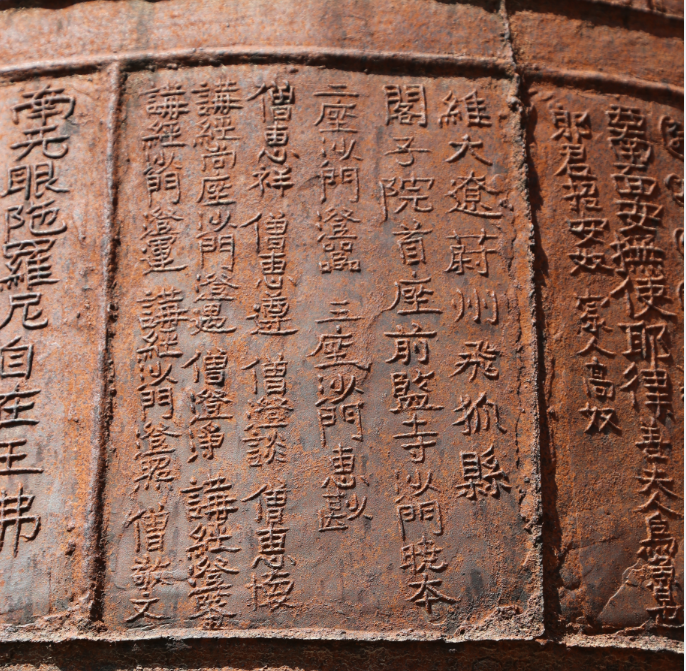 安撫使耶律善夫人
郎君招安奴 家人高奴
維大遼蔚州飛狐縣
閣子院首座前監寺沙門曉本
二座沙門澄 三座沙門惠
僧惠祥 僧惠遵 僧澄談 僧惠
講經尚座沙門澄遇 僧澄淨 講經澄
講經沙門澄 講經沙門澄 僧敬文
南无眼陁羅尼自在王佛